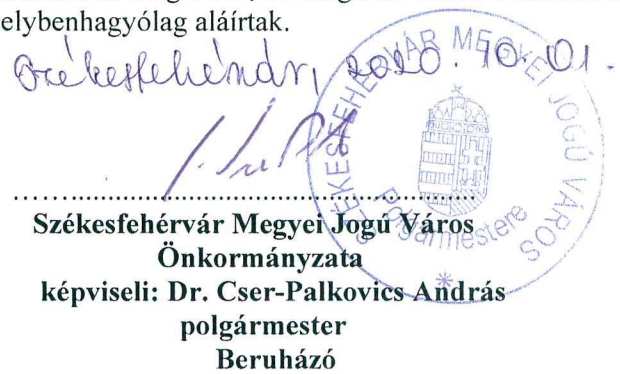 elybenhagyólag aláírtak.
Székesfehérvár, 2020. 10. 01.
SZÉKESFEHÉRVÁR MEGYEI JOGÚ VÁROS
Polgármestere
Székesfehérvár Megyei Jogú Város
Önkormányzata
képviseli: Dr. Cser-Palkovics András
polgármester
Beruházó